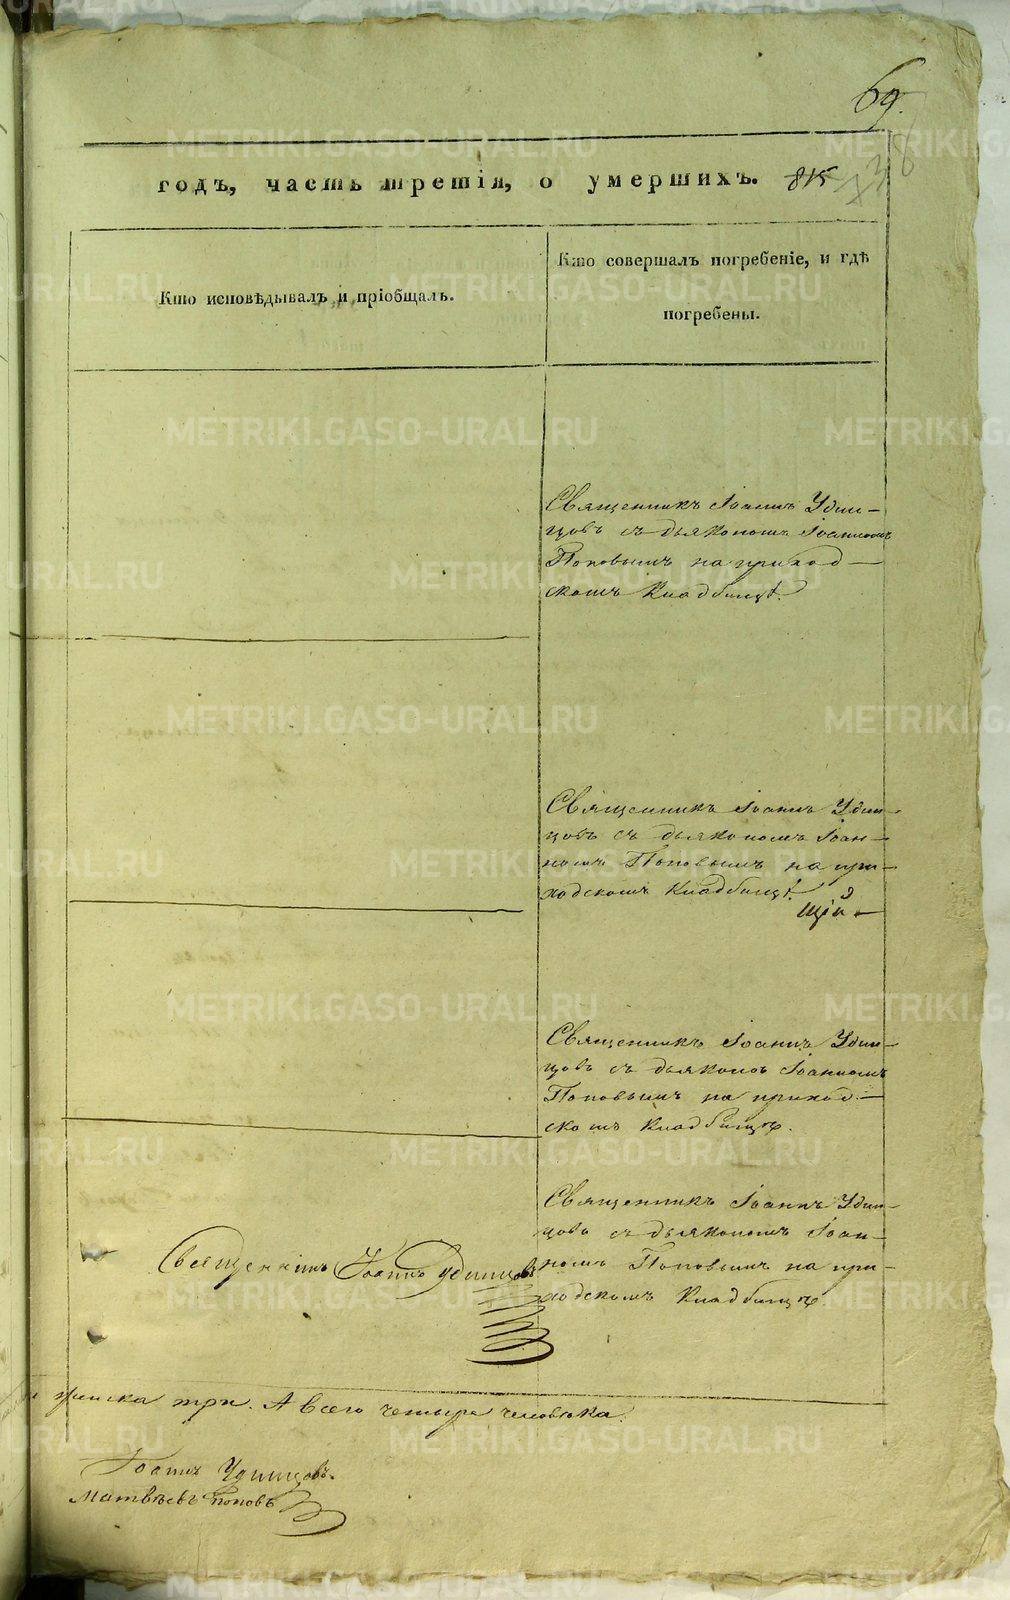 69.
годъ, часть третія, о умершихъ. 815
Кто исповѣдывалъ и пріобщалъ.
Кто совершалъ погребеніе, и гдѣ
погребены.
Священникъ Іоаннъ Удин-
цовъ съ дьякономъ Іоанномъ
Поповымъ на приход-
скомъ Кладбищѣ.
Священникъ Іоаннъ Удин-
цовъ съ дьякономъ Іоан-
номъ Поповымъ на при-
ходскомъ Кладбищѣ.
щій
Священникъ Іоаннъ Удин-
цовъ съ дьякономъ Іоанномъ
Поповымъ на приход-
скомъ Кладбищѣ.
Священникъ Іоаннъ Удин-
цовъ съ дьякономъ Іоан-
номъ Поповымъ на при-
ходскомъ Кладбищѣ.
Священникъ Іоаннъ Удинцовъ
три. А всего четыре человѣка.
Іоаннъ Удинцовъ.
Матвѣевъ Поповъ
METRIKI.GASO-URAL.RU